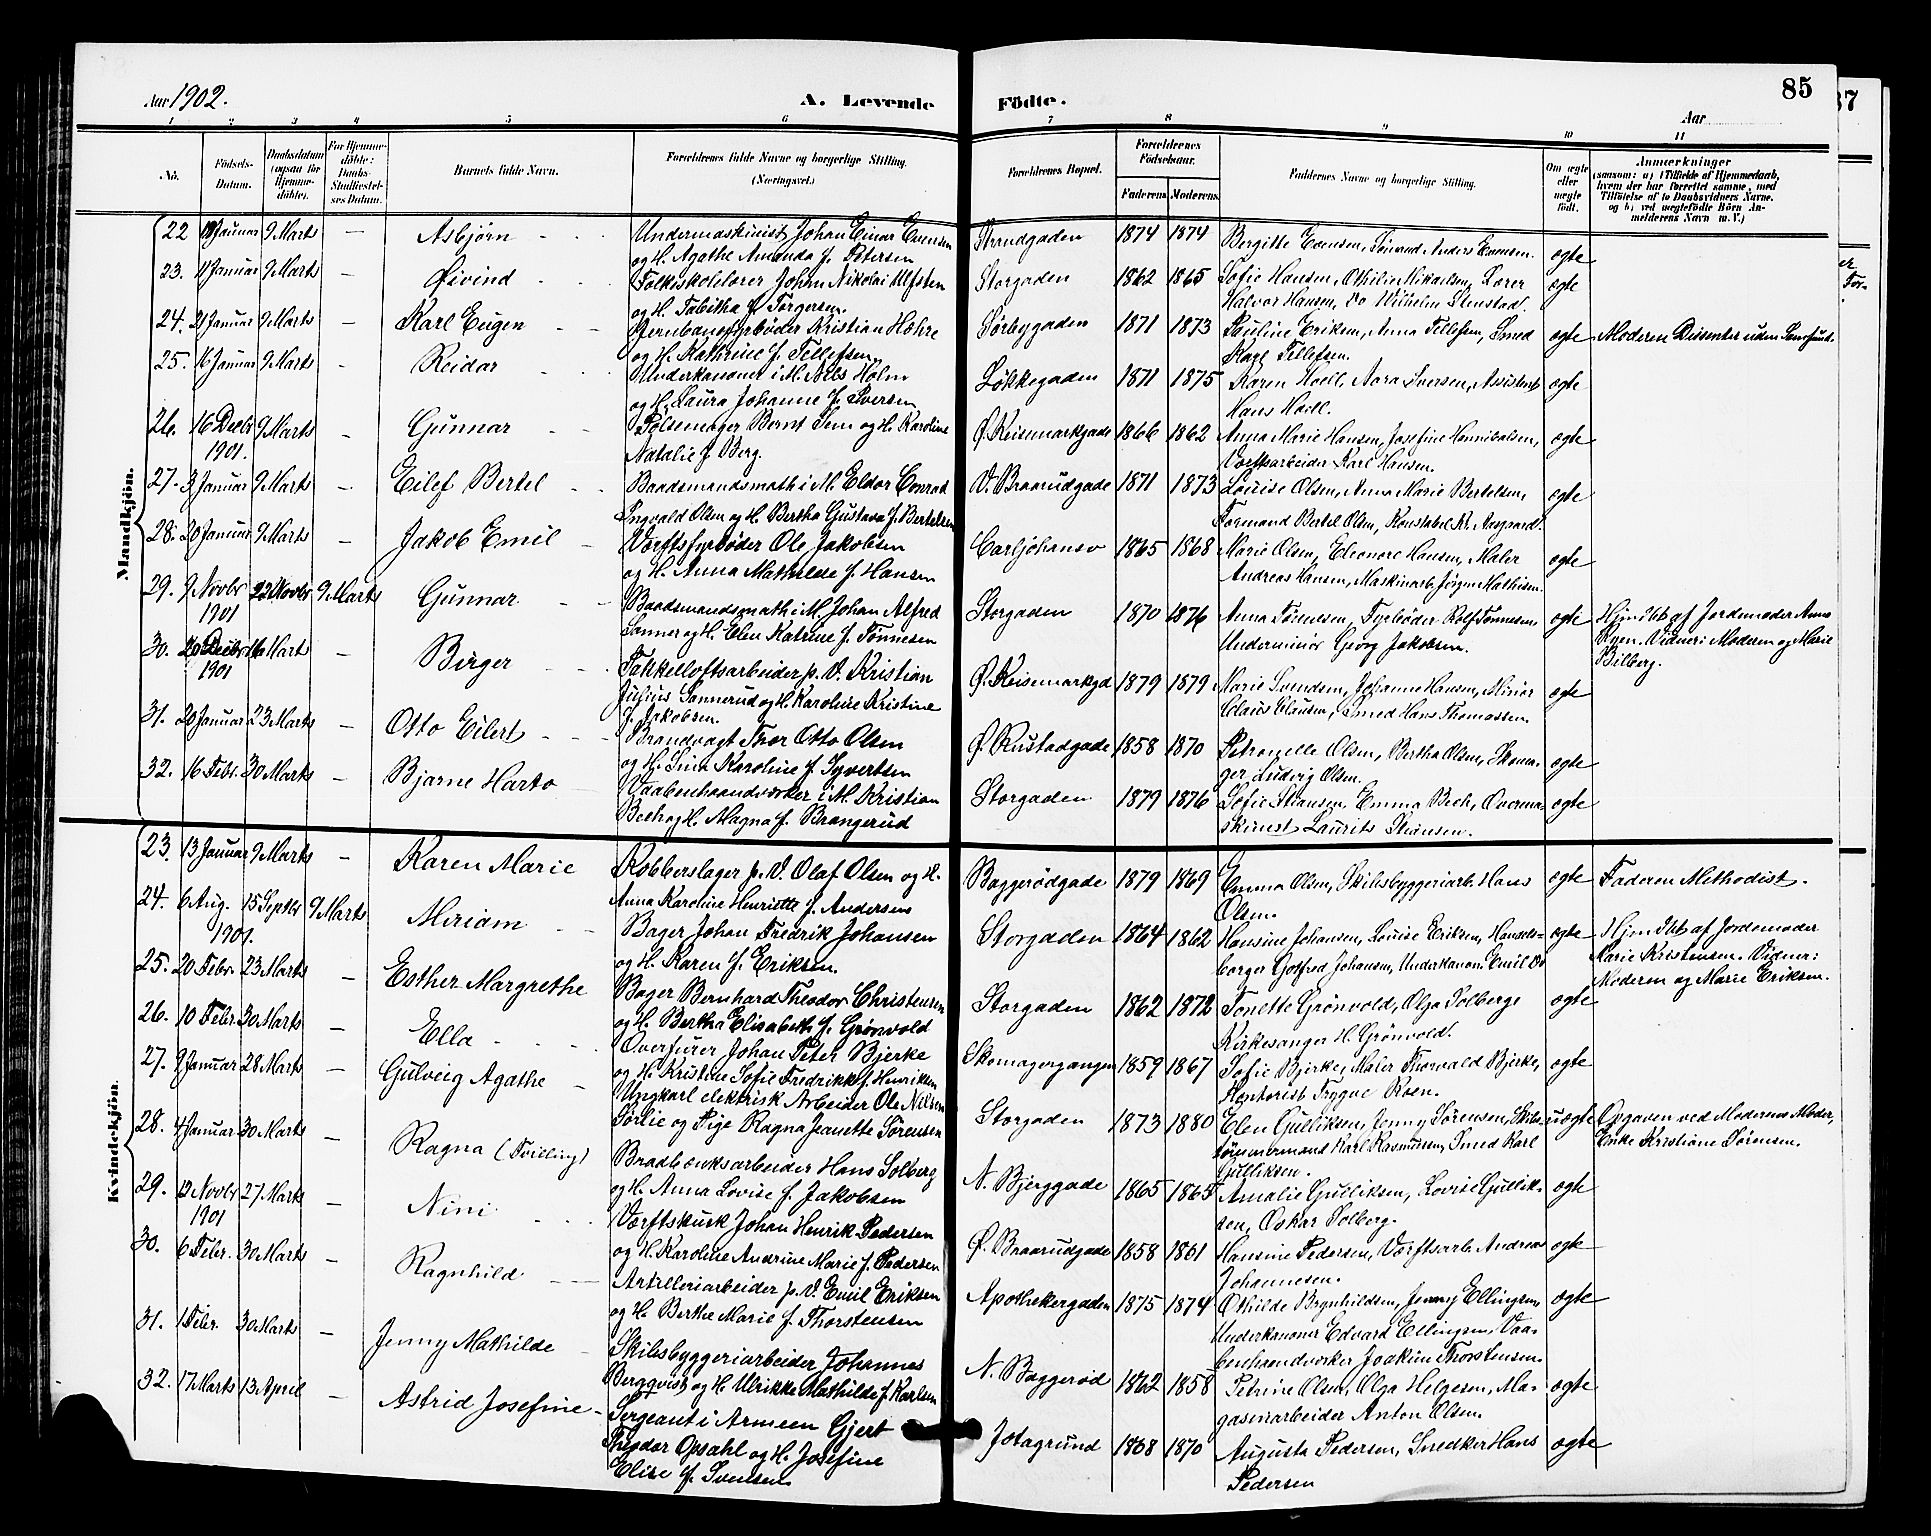 Aar 1902. A. Levende Födte. Aar 85
1 2 3 4 5 6 7 8 9 10 11
No. Födsels-Datum. Daabsdatum (ogsaa for Hjemmedöbte). For Hjemmedöbte: Daabs-Stadfæstelses Datum. Barnets fulde Navn. Forældrenes fulde Navne og borgerlige Stilling. (Næringsvei.) Forældrenes Bopæl. Forældrenes Födselsaar. Faderens Moderens Faddernes Navne og borgerlige Stilling. Om ægte eller uægte födt. Anmærkninger (saasom: a) i Tilfælde af Hjemmedaab, hvem der har forrettet samme, med Tilföielse af to Daabsvidners Navne. og b) ved uægtefödte Börn Anmelderens Navn m. V.)
Mandkjön.
22 Januar 9 Marts — Asbjörn Undermaskinist Johan Einar Evensen og H. Agathe Amanda f. Petersen Strandgaden 1874 1874 Bergitte Evensen, Sömand Anders Evensen. ægte
23. 11 Januar 9 Marts — Øivind Folkeskolelærer Johan Nikolai Ulfsten og H. Tabitha f. Torgersen Storgaden 1862 1865 Sofie Hansen, Othilie Mikaelsen, Lærer Halvor Hansen, Do Wilhelm Stenstad. ægte
24. 21 Januar 9 Marts — Karl Eugen Jernbanefyrböder Kristian Hæhre og H. Kathrine f. Tellefsen Sörbygaden 1871 1873 Pauline Eriksen, Anna Tellefsen, Smed Karl Tellefsen. ægte Moderen Dissenter uden Samfund.
25. 16 Januar 9 Marts — Reidar Underkanoner i M. Nils Holm og H. Laura Johanne f. Iversen Lökkegaden 1871 1875 Karen Hoell, Aora Iversen, Assistent Hans Hoell. ægte
26. 16 Decbr 1901. 9 Marts — Gunnar Pölsemager Bernt Tem og H. Karoline Natalie f. Berg. Ø. Keisemarkgade 1866 1862 Anna Marie Hansen, Josefine Hannibalsen, Værftsarbeider Karl Hansen. ægte
27. 3 Januar 9 Marts — Eilef Bertel Baadsmandsmath i M. Eldor Conrad Ingvald Olsen og H. Bertha Gustava f. Bertelsen V. Braarudgade 1871 1873 Louise Olsen, Anna Marie Bertelsen, Formand Bertel Olsen, Konstabel Kr. Aasgaard. ægte
28. 20 Januar 9 Marts — Jakob Emil Værftsfyrböder Ole Jakobsen og H. Anna Mathilde f. Hansen Carljohansv 1865 1868 Marie Olsen, Eleonore Hansen, Maler Andreas Hansen, Maskinarb. Jörgen Mathisen. ægte
29. 9 Novbr 1901 22 Novbr 9 Marts Gunnar Baadsmandsmath i M. Johan Alfred Sanner og H. Elen Katrine f. Tönnesen Storgaden 1870 1876 Anna Tönnesen, Fyrböder Rolf Tönnesen, Underminör Georg Jakobsen. ægte Hjm Dbt af Jordemoder Anna Ryen. Vidner: Moderen og Marie Bilberg.
30. 20 Decbr 1901 16 Marts — Birger Takkelloftsarbeider p. V. Kristian Julius Sannerud og H. Karoline Kristine f. Jakobsen Ø. Keisemarkgd 1879 1879 Marie Svendsen, Johanne Hansen, Minör Claus Clausen, Smed Hans Thomassen. ægte
31. 20 Januar 23 Marts — Otto Eilert Brandvagt Thor Otto Olsen og H. Lina Karoline f. Syvertsen Ø. Rustadgade 1858 1870 Petronelle Olsen, Bertha Olsen, Skomager Ludvig Olsen. ægte
32. 16 Febr. 30 Marts — Bjarne Harto Vaabenhaandværker i M. Kristian Bech og H. Magna f. Brangerud Storgaden 1879 1876 Sofie Thansen, Emma Bech, Overmaskinist Laurits Thansen. ægte
Kvindekjön.
23. 13 Januar 9 Marts — Karen Marie Kobberslager p. V. Olaf Olsen og H. Anna Karoline Henriette f. Andersen Baggerödgade 1879 1869 Emma Olsen, Skibsbyggeriarb. Hans Olsen. ægte Faderen Methodist.
24. 6 Aug. 1901. 15 Septbr 9 Marts Miriam Bager Johan Fredrik Johansen og H. Karen f. Eriksen. Storgaden 1864 1862 Hansine Johansen, Louise Eriksen, Handelsborger Gotfred Johansen, Underkanon. Emil Do ægte Hjm Dbt af Jordemoder Marie Kristensen. Vidner: Moderen og Marie Eriksen.
25. 20 Febr. 23 Marts — Esther Margrethe Bager Bernhard Theodor Christensen og H. Bertha Elisabeth f. Grönvold Storgaden 1862 1872 Tonette Grönvold, Olga Solberg, Kirkesanger H. Grönvold. ægte
26. 10 Febr. 30 Marts — Ella Overfurer Johan Peter Bjerke og H. Kristine Sofie Fredrikke f. Henriksen Skomagergangen 1859 1867 Sofie Bjerke, Maler Thorvald Bjerke, Kontorist Trygve Roen. ægte
27. 9 Januar 28 Marts — Gulveig Agathe Ungkarl elektrisk Arbeider Ole Nilsen Sörlie og Pige Ragna Jeanette Sörensen Storgaden 1873 1880 Elen Gulliksen, Jenny Sörensen, Skibstömmermand Karl Rasmussen, Smed Karl Gulliksen. uægte Opgaven ved Moderens Moder, Enke Kristiane Sörensen.
28. 4 Januar 30 Marts — Ragna (Tvilling) Bradbænksarbeider Hans Solberg og H. Anna Lovise f. Jakobsen N. Bjerggade 1865 1865 Amalie Gulliksen, Lovise Gulliksen, Oskar Solberg. ægte
29. 12 Novbr 1901 27 Marts — Nini Værftskusk Johan Henrik Pedersen og H. Karoline Andrine Marie f. Pedersen Ø. Braarudgade 1858 1861 Hansine Pedersen, Værftsarb. Andreas Johannesen. ægte
30. 6 Febr. 30 Marts — Ragnhild Artilleriarbeider p. V. Emil Eriksen og H. Berthe Marie f. Thorstensen Apothekergaden 1875 1874 Othilde Brynhildsen, Jenny Ellingsen, Underkanoner Edvard Ellingsen, Vaabenhaandværker Joakim Thorstensen. ægte
31. 1 Febr. 30 Marts — Jenny Mathilde Skibsbyggeriarbeider Johannes Bergqvist og H. Ulrikke Mathilde f. Karlsen N. Baggeröd 1862 1858 Petrine Olsen, Olga Helgesen, Magasinarbeider Anton Olsen. ægte
32. 17 Marts 13 April — Astrid Josefine Sergeant i Armeen Gjert Theodor Opsahl og H. Josefine Elise f. Svensen Jotagrund 1868 1870 Augusta Pedersen, Snedker Hans Pedersen ægte